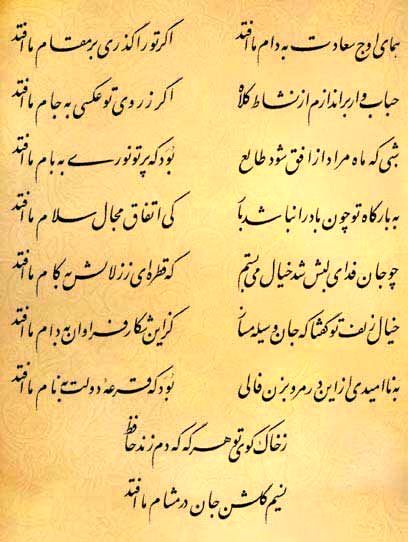 همای اوج سعادت به دام ما افتد اگر تو را گذری بر مقام ما افتد
حباب وار براندازم از نشاط کلاه اگر ز روی تو عکسی به جام ما افتد
شبی که ماه مراد از افق شود طالع بود که پرتو نوری به بام ما افتد
به بارگاه تو چون باد را نباشد بار کی اتفاق مجال سلام ما افتد
چو جان فدای لبش شد خیال می‌بستم که قطره‌ای ز زلالش به کام ما افتد
خیال زلف تو گفتا که جان وسیله مساز کز این شکار فراوان به دام ما افتد
به ناامیدی از این در مرو بزن فالی بود که قرعهٔ دولت به نام ما افتد
ز خاک کوی تو هر گه که دم زند حافظ
نسیم گلشن جان در مشام ما افتد